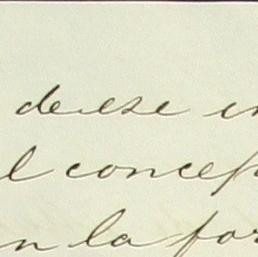 de ese in
l concep
n la for